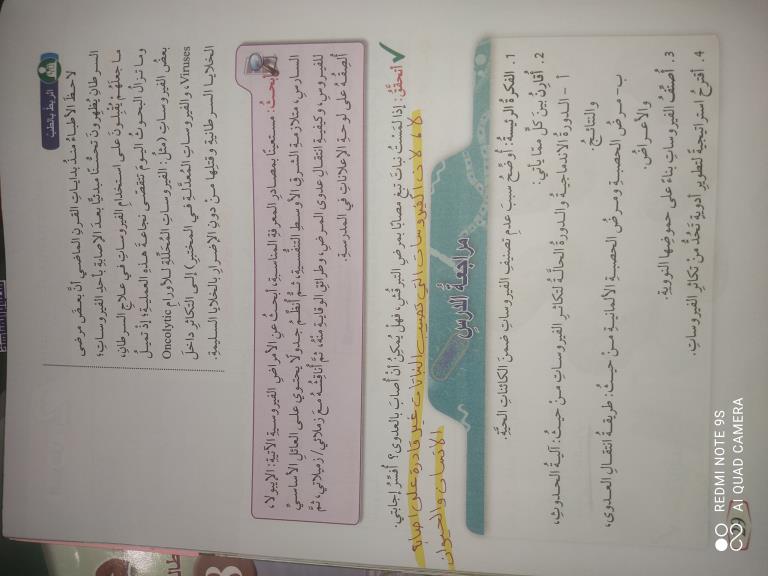 الربط بالطب
لاحظَ الأطباءُ منذُ بداياتِ القرنِ الماضي أنَّ بعضَ مرضى
السرطانِ يُظهرونَ تحسُّنًا مبدئيًّا بعدَ الإصابةِ بأحدِ الفيروساتِ؛
ما جعلَهُمْ يُقبلونَ على استخدامِ الفيروساتِ في علاجِ السرطانِ.
وما تزالُ البحوثُ اليومَ تتقصّى نجاعةَ هذهِ العمليةِ؛ إذْ تميلُ
بعضُ الفيروساتِ (مثلُ: الفيروساتِ المُحلِّلةِ للأورامِ Oncolytic
Viruses، والفيروساتِ المُعدَّلةِ في المختبرِ) إلى التكاثرِ داخلَ
الخلايا السرطانيةِ وقتلِها منْ دونِ الإضرارِ بالخلايا السليمةِ.
أبحثُ: مستعينًا بمصادرِ المعرفةِ المناسبةِ، أبحثُ عنِ الأمراضِ الفيروسيةِ الآتيةِ: الإيبولا،
السارس، متلازمةِ الشرقِ الأوسطِ التنفسيةِ، ثمَّ أُنظِّمُ جدولًا يحتوي على العائلِ الأساسيِّ
للفيروسِ، وكيفيةِ انتقالِ عدوى المرضِ، وطرائقِ الوقايةِ منهُ، ثمَّ أُناقِشُهُ معَ زملائي/ زميلاتي، ثمَّ
أُلصِقُهُ على لوحةِ الإعلاناتِ في المدرسةِ.
✓ أتحقَّقُ: إذا لمَسْتُ نباتَ تبغٍ مصابًا بمرضِ التبرقشِ، فهلْ يُمكِنُ أنْ أُصابَ بالعدوى؟ أُفسِّرُ إجابتي.
لا، لأن الفيروسات التي تصيب النباتات غير قادرة على اصابة
الانسان والحيوان
مراجعةُ الدرسِ
1. الفكرةُ الرئيسةُ: أُوضِّحُ سببَ عدمِ تصنيفِ الفيروساتِ ضمنَ الكائناتِ الحيَّةِ.
2. أُقارِنُ بينَ كلٍّ ممّا يأتي:
أ - الدورةُ الاندماجيةُ والدورةُ الحالَّةُ لتكاثرِ الفيروساتِ منْ حيثُ: آليةُ الحدوثِ،
والنتائجُ.
ب- مرضُ الحصبةِ ومرضُ الحصبةِ الألمانيةِ منْ حيثُ: طريقةُ انتقالِ العدوى،
والأعراضُ.
3. أُصنِّفُ الفيروساتِ بناءً على حموضِها النوويةِ.
4. أقترحُ استراتيجيةً لتطويرِ أدويةٍ تَحُدُّ منْ تكاثرِ الفيروساتِ.
REDMI NOTE 9S
AI QUAD CAMERA